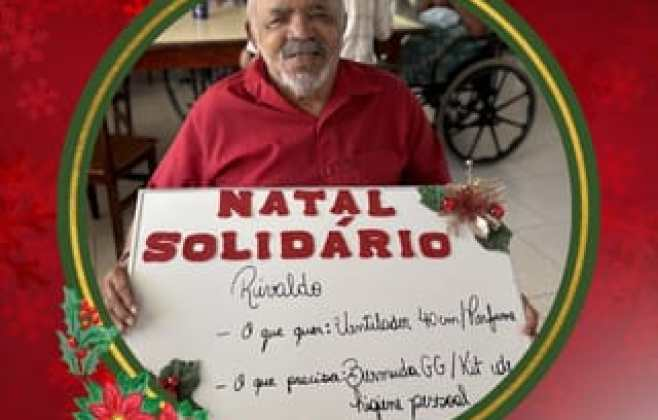 NATAL
SOLIDÁRIO
Rivaldo
- O que quer: Ventilador 40cm/Perfume
- O que precisa: Bermuda GG/Kit de
higiene pessoal